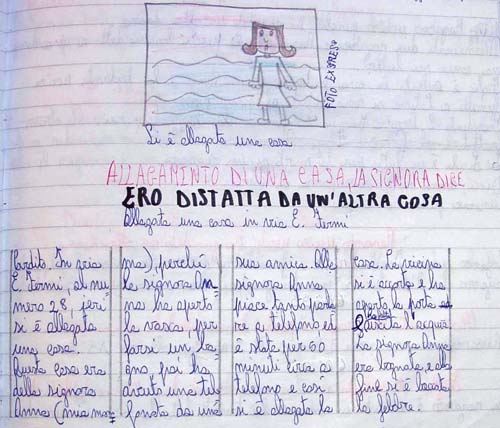 FOTO EXPRESS
Si è allagata una casa
ALLAGAMENTO DI UNA CASA, LA SIGNORA DICE
ERO DISTATTA DA UN'ALTRA COSA
Allagata una casa in via E. Fermi
Cardito. In via
E. Fermi, al nu=
mero 28, ieri
si è allagata
una casa.
Questa casa era
della signora
Anna (mia mam=
ma), perché
la signora An=
na ha aperto
la vasca, per
farsi un ba=
gno, poi ha
avuto una tele
fonata da una
sua amica. Alla
signora Anna
piace tanto parla=
re a telefono ed
è stata per 50
minuti circa a
telefono e così
si è allagata la
casa. La vicina
si è accorta e ha
aperto la porta ed
è uscita l'acqua.
La signora Anna
era bagnata e alla
fine si è beccata
la febbre.